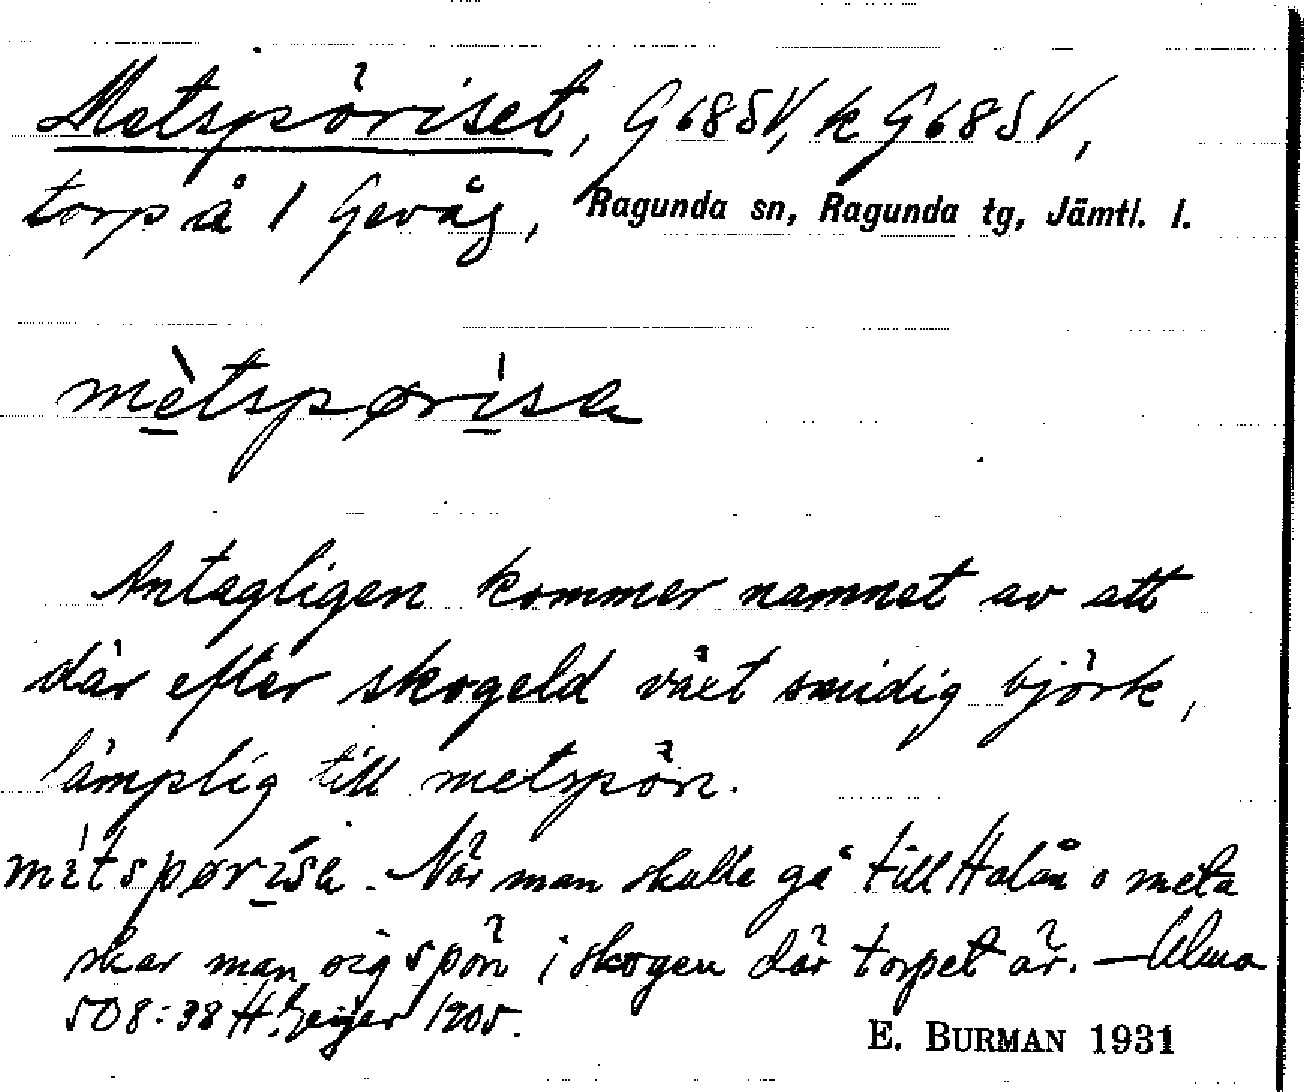 Metspöriset, G68SV, k G68SV,
torp å 1 Gevåg, Ragunda sn, Ragunda tg, Jämtl. l.
mètspørisa
Antagligen kommer namnet av att
där efter skogeld växt smidig björk,
lämplig till metspön.
mítspørísa. När man skulle gå till Halån o meta
skar man sig spön i skogen där torpet är. – Ulma
508:38 H. Geijer 1905.
E. BURMAN 1931